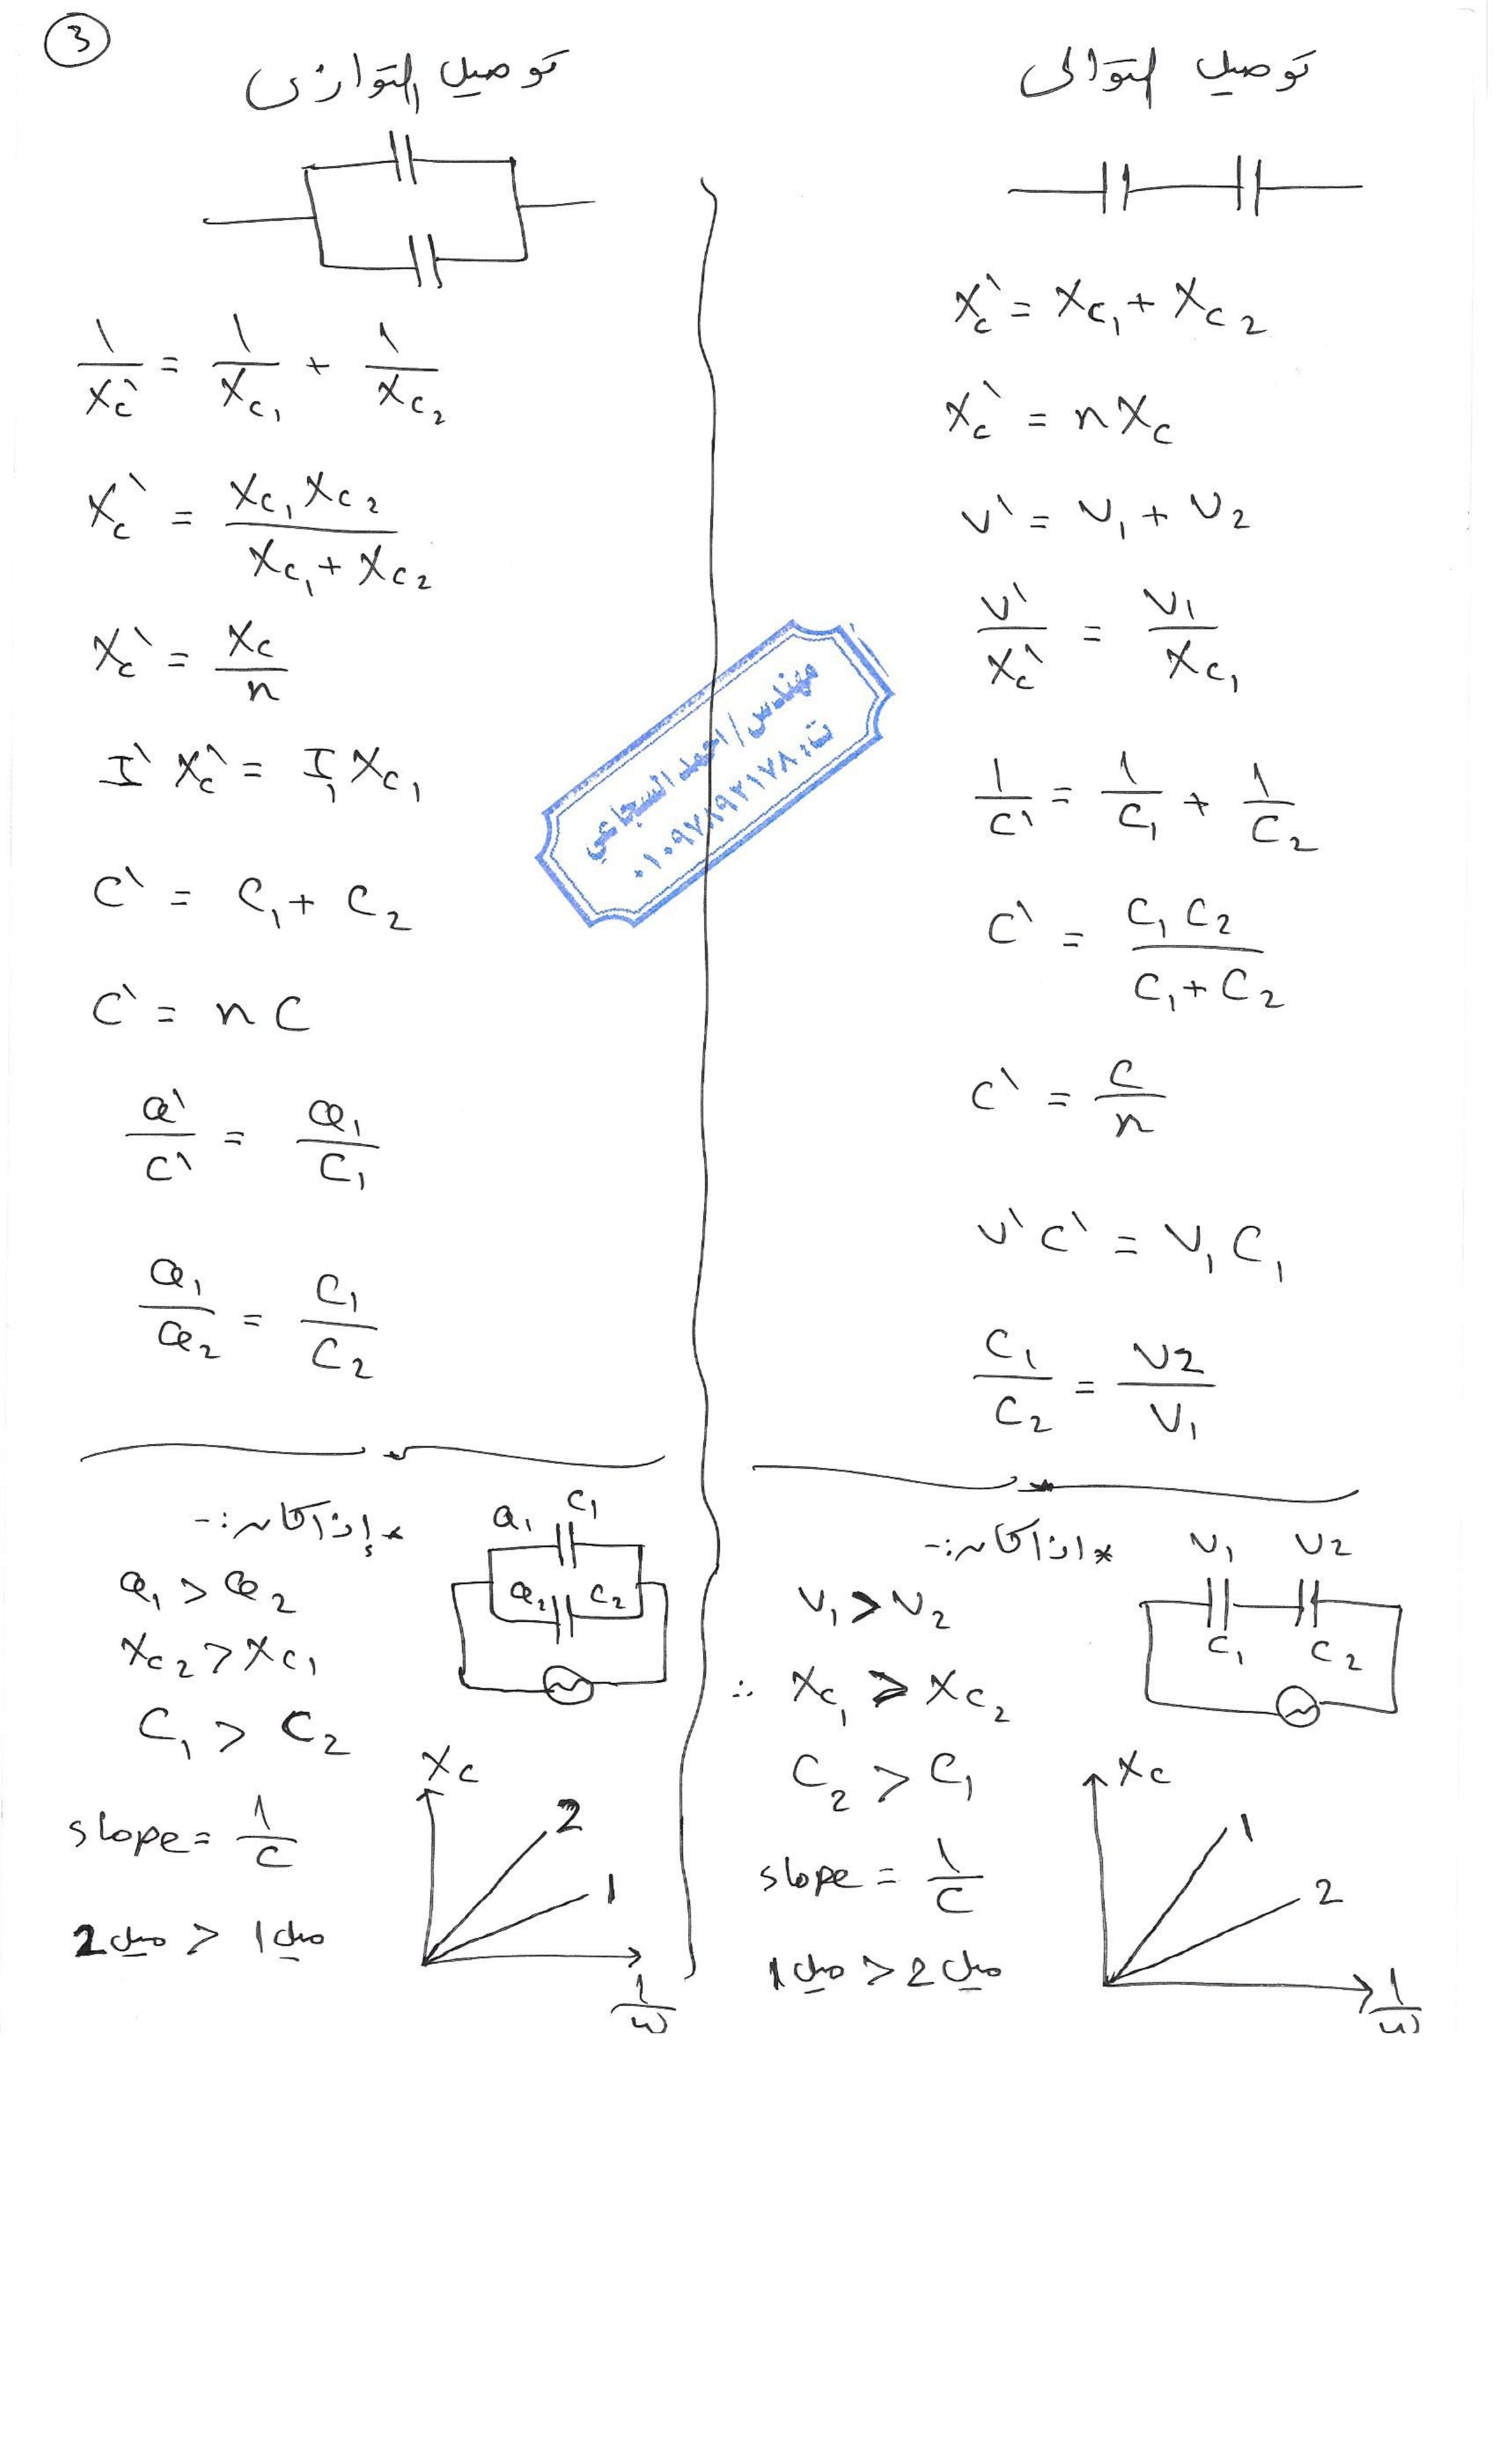 3
توصيل التوالى
X_C` = X_C1 + X_C2
X_C` = n X_C
V` = V1 + V2
V` / X_C` = V1 / X_C1
1/C` = 1/C1 + 1/C2
C` = C1 C2 / (C1 + C2)
C` = C / n
V` C` = V1 C1
C1 / C2 = V2 / V1
* اذا كان :-
V1 V2
C1 C2
V1 > V2
∴ X_C1 > X_C2
C2 > C1
slope = 1/C
ميل 1 > ميل 2
X_C
1
2
1/ω
توصيل التوازى
1/X_C` = 1/X_C1 + 1/X_C2
X_C` = X_C1 X_C2 / (X_C1 + X_C2)
X_C` = X_C / n
I` X_C` = I1 X_C1
C` = C1 + C2
C` = n C
Q` / C` = Q1 / C1
Q1 / Q2 = C1 / C2
* إذا كان :-
Q1 C1
Q2 C2
Q1 > Q2
X_C2 > X_C1
C1 > C2
slope = 1/C
ميل 2 > ميل 1
X_C
2
1
1/ω
مهندس/احمد السجاعي